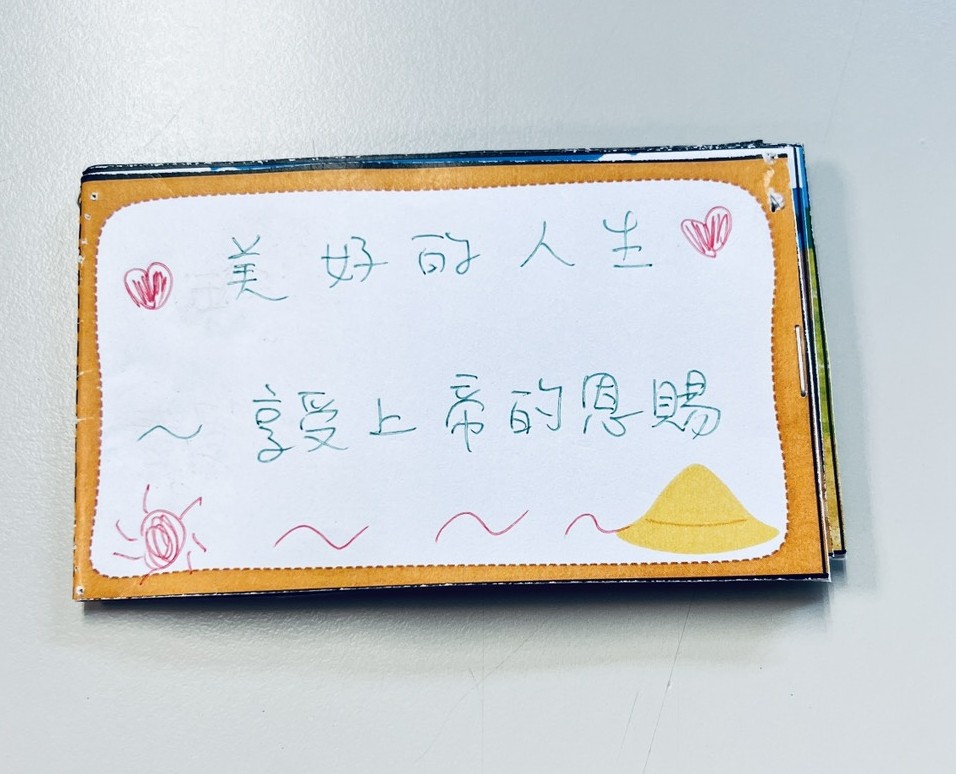 美好的人生
～享受上帝的恩賜